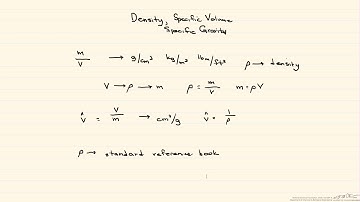 Density, Specific Volume
Specific Gravity
m/V → g/cm³ kg/m³ lbm/ft³ ρ → density
V → ρ → m ρ = m/V m = ρV
V̂ = V/m → cm³/g V̂ = 1/ρ
ρ → standard reference book